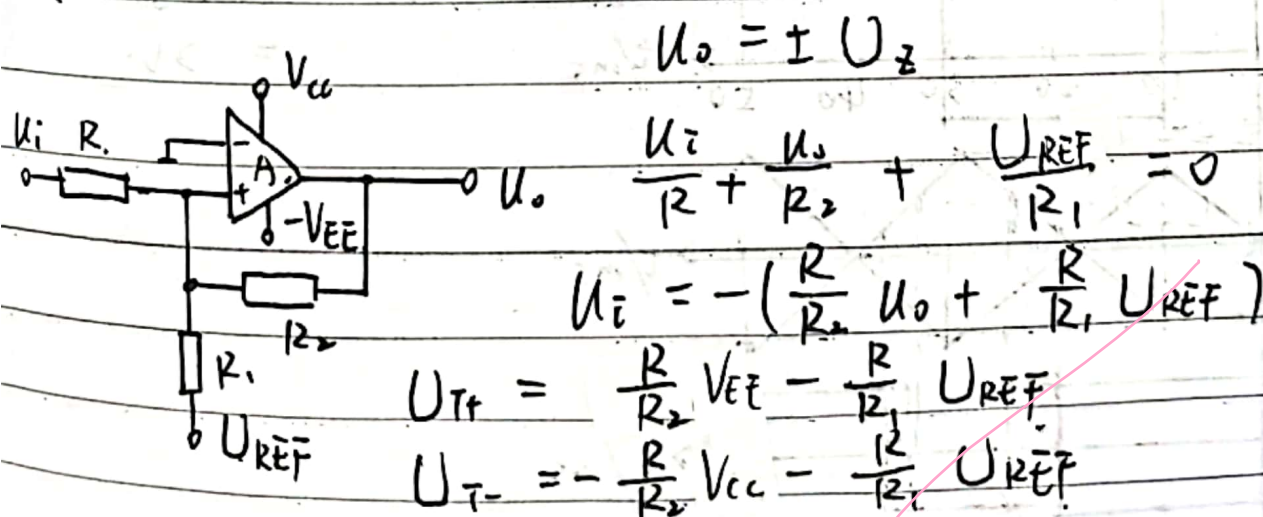 u₀ = ± U_z
V_cc
u_i R.
- A. +
u₀
-V_EE
R₂
R₁
U_REF
u_i/R + u₀/R₂ + U_REF/R₁ = 0
u_i = -(R/R₂ u₀ + R/R₁ U_REF)
U_T+ = R/R₂ V_EE - R/R₁ U_REF
U_T- = -R/R₂ V_cc - R/R₁ U_REF